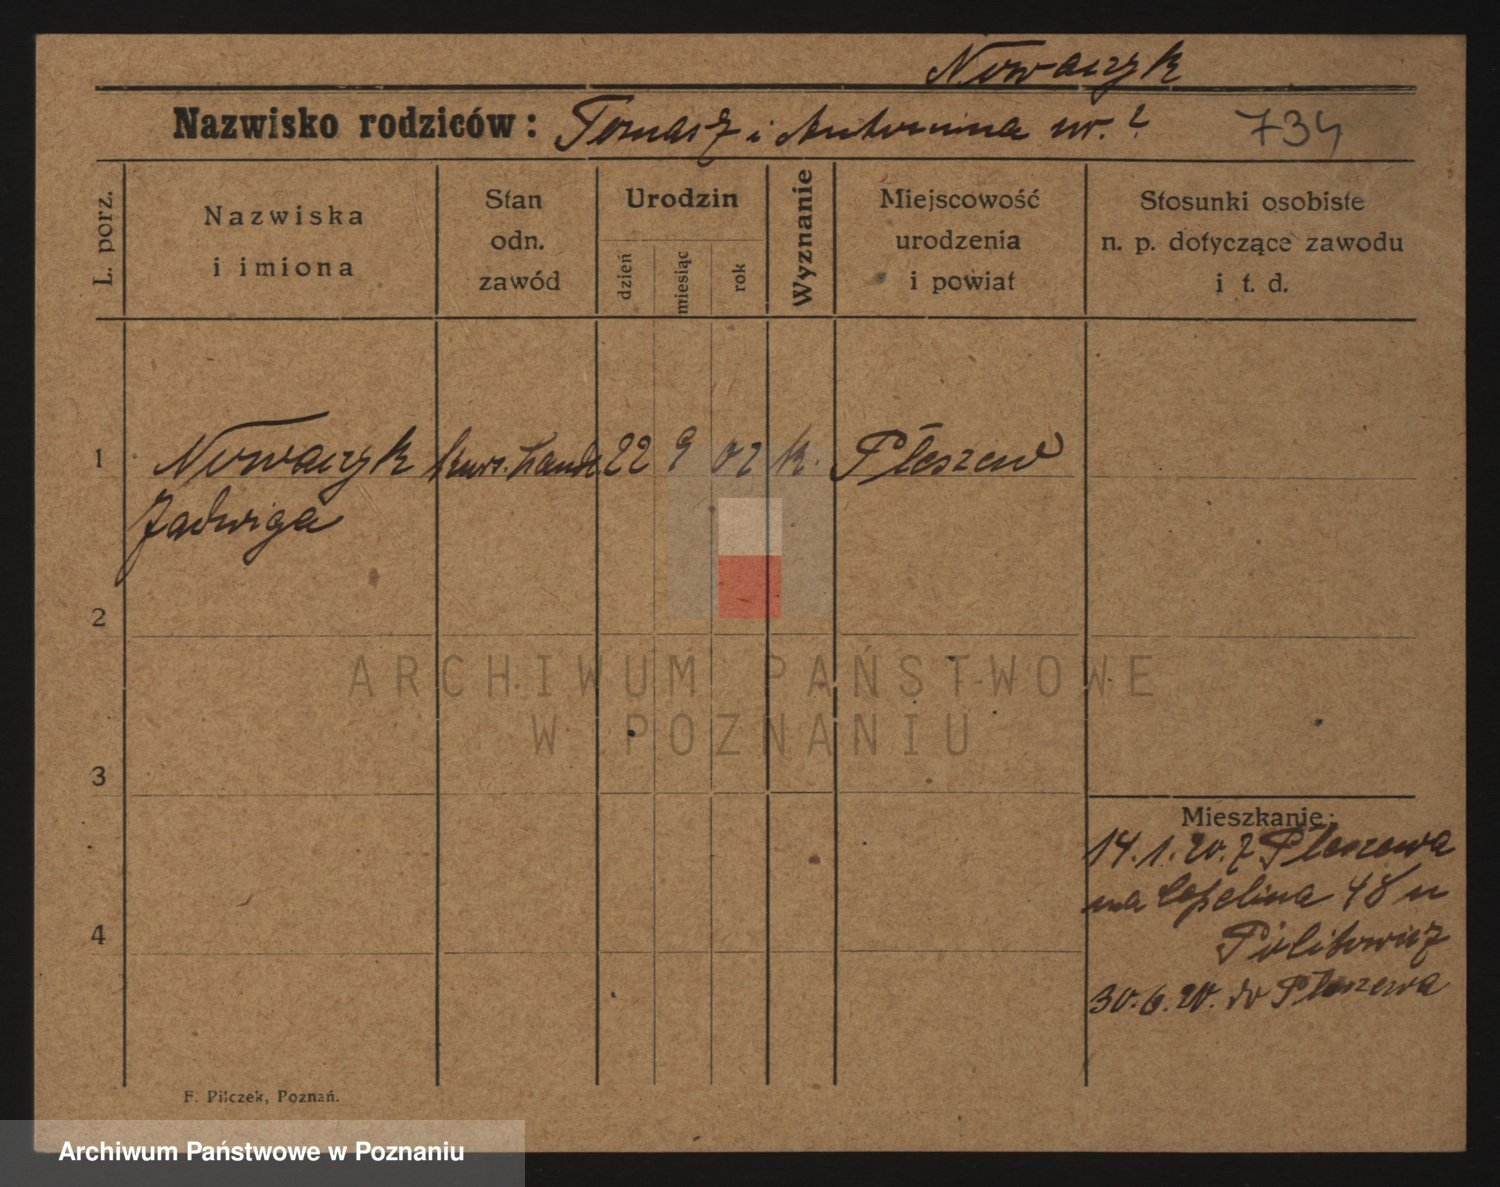 Nowaczyk
Nazwisko rodziców: Tomasz i Antonina ur. ?
734
L. porz.
Nazwiska
i imiona
Stan
odn.
zawód
Urodzin
dzień
miesiąc
rok
Wyznanie
Miejscowość
urodzenia
i powiat
Stosunki osobiste
n. p. dotyczące zawodu
i t. d.
1
Nowaczyk kurs. handl 22 9 02 k. Pleszew
Jadwiga
2
ARCHIWUM PAŃSTWOWE
W POZNANIU
3
Mieszkanie:
14.1.20. z Pleszewa
na 48 u
4
30.6.20. do Pleszewa
F. Pilczek, Poznań.
Archiwum Państwowe w Poznaniu